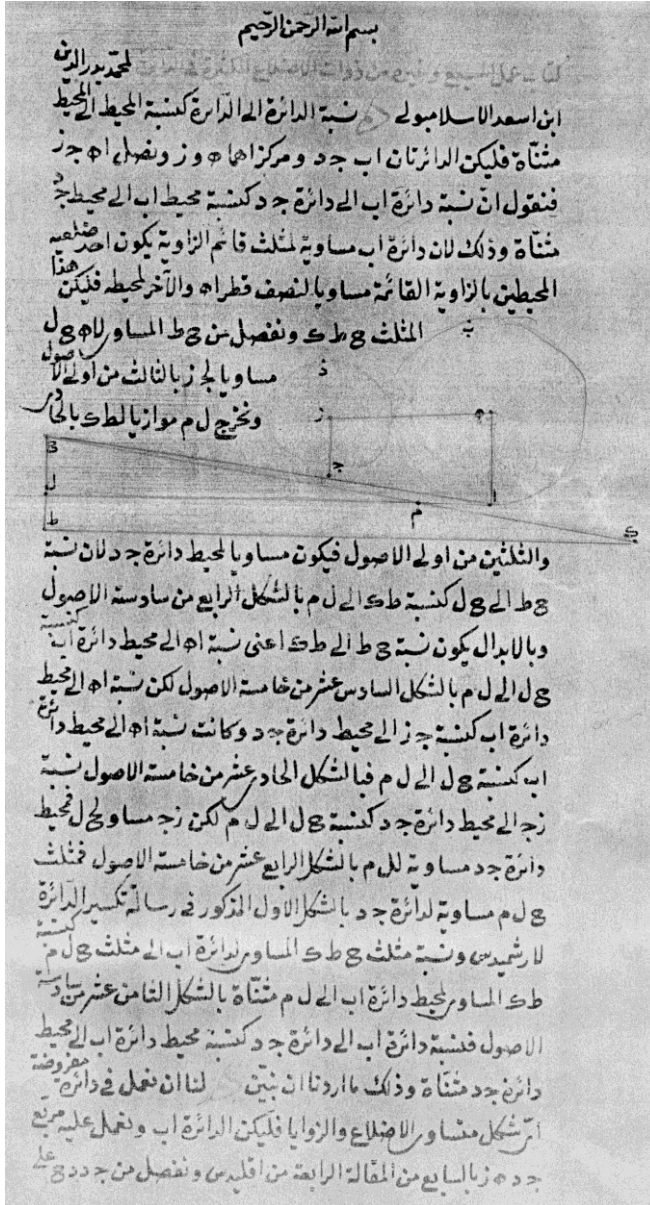 بسم الله الرحمن الرحيم
لمحمد بدر الدين
ابن اسعد الاسلامبولي نسبة الدائرة الى الدائرة كنسبة المحيط الى المحيط
مثناة فليكن الدائرتان اب جد و مركزاهما ه و ز ونصل اه جز
فنقول ان نسبة دائرة اب الى دائرة جد كنسبة محيط اب الى محيط جد
مثناة وذلك لان دائرة اب مساوية لمثلث قائم الزاوية يكون احد ضلعيه
المحيطين بالزاوية القائمة مساويا لنصف قطر اه والآخر لمحيطه فليكن هذا
المثلث ح ط ك ونفصل من ح ط المساوى لاه ح ل
مساويا لجز بالثالث من اولى الاصول
ونخرج ل م موازيا لط ك بالحادى
ب
د
ز
ه
ج
ا
ح
ل
ط
م
ك
والثلثين من اولى الاصول فيكون مساويا لمحيط دائرة جد لان نسبة
ح ط الى ح ل كنسبة ط ك الى ل م بالشكل الرابع من سادسة الاصول
وبالابدال يكون نسبة ح ط الى ط ك اعنى نسبة اه الى محيط دائرة اب كنسبة
ح ل الى ل م بالشكل السادس عشر من خامسة الاصول لكن نسبة اه الى محيط
دائرة اب كنسبة جز الى محيط دائرة جد وكانت نسبة اه الى محيط دائرة
اب كنسبة ح ل الى ل م فبالشكل الحادى عشر من خامسة الاصول نسبة
زج الى محيط دائرة جد كنسبة ح ل الى ل م لكن زج مساو لح ل فمحيط
دائرة جد مساوية لل م بالشكل الرابع عشر من خامسة الاصول فمثلث
ح ل م مساوية لدائرة جد بالشكل الاول المذكور فى رسالة تكسير الدائرة
لارشميدس ونسبة مثلث ح ط ك المساوى لدائرة اب الى مثلث ح ل م كنسبة
ط ك المساوى لمحيط دائرة اب الى ل م مثناة بالشكل الثامن عشر من سادسة
الاصول فنسبة دائرة اب الى دائرة جد كنسبة محيط دائرة اب الى محيط
دائرة جد مثناة وذلك ما اردنا ان نبين لنا ان نعمل فى دائرة مفروضة
اى شكل متساوى الاضلاع والزوايا فليكن الدائرة اب ونعمل عليه مربع
جده ز بالسابع من المقالة الرابعة من اقليدس ونفصل من جد دح على